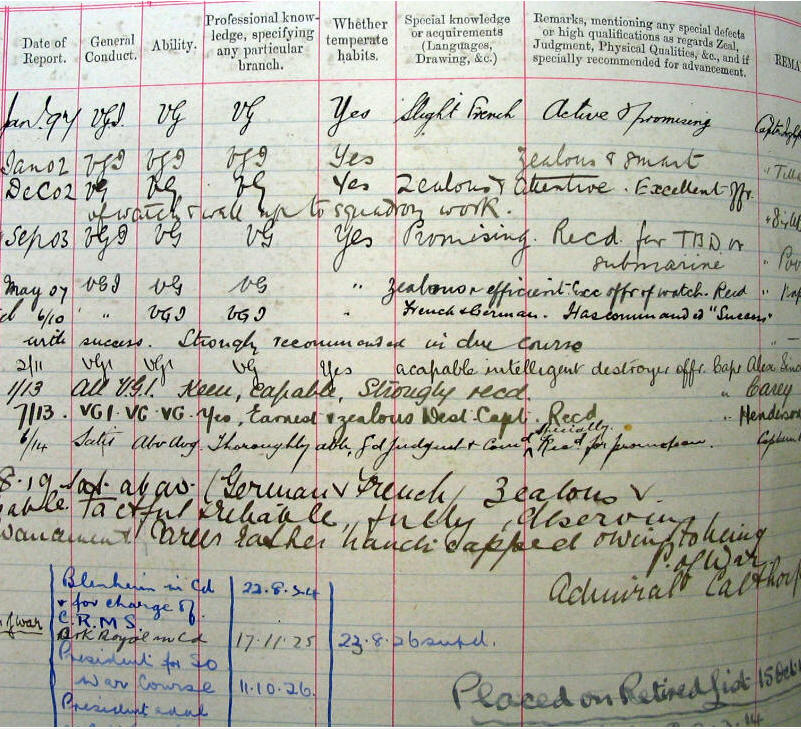 Date of Report. General Conduct. Ability. Professional knowledge, specifying any particular branch. Whether temperate habits. Special knowledge or acquirements (Languages, Drawing, &c.) Remarks, mentioning any special defects or high qualifications as regards Zeal, Judgment, Physical Qualities, &c., and if specially recommended for advancement. REMA
Jan. 97 VGI VG VG Yes Slight French Active & promising
Jan 02 VGI VGI VGI Yes Zealous & smart
Dec 02 VG VG VG Yes Zealous & attentive. Excellent offr.
of watch & well up to squadron work.
Sep 03 VGI VG VG Yes Promising. Recd. for TBD or
submarine
May 07 VGI VG VG " Zealous & efficient. Exc offr of watch. Recd
6/10 " VGI VGI " French & German. Has commanded "Success"
with success. Strongly recommended in due course
2/11 VGI VGI VG Yes a capable intelligent destroyer offr. Capt Alex. Sinc
1/13 All V.G.I. Keen, capable, Strongly recd. " Carey
7/13. VGI. VG. VG. Yes, Earnest & zealous Dest. Capt. Recd " Henderson
6/14 Satis Abv avg. Thoroughly able, Gd judgmt & Comd Specially Recd for promotion. Captain
8.19 Sat. ab av. (German & French) Zealous &
able. Tactful reliable, fully deserving
career rather handicapped owing to being
P. of War
Admiral Calthorp
Blenheim in Cd 22.8.24
& for charge of
C.R.M.S.
of war Ark Royal in Cd 17.11.25 23.8.26 supd.
President for SO
War Course 11.10.26.
President addl
Placed on Retired List 15 Oct